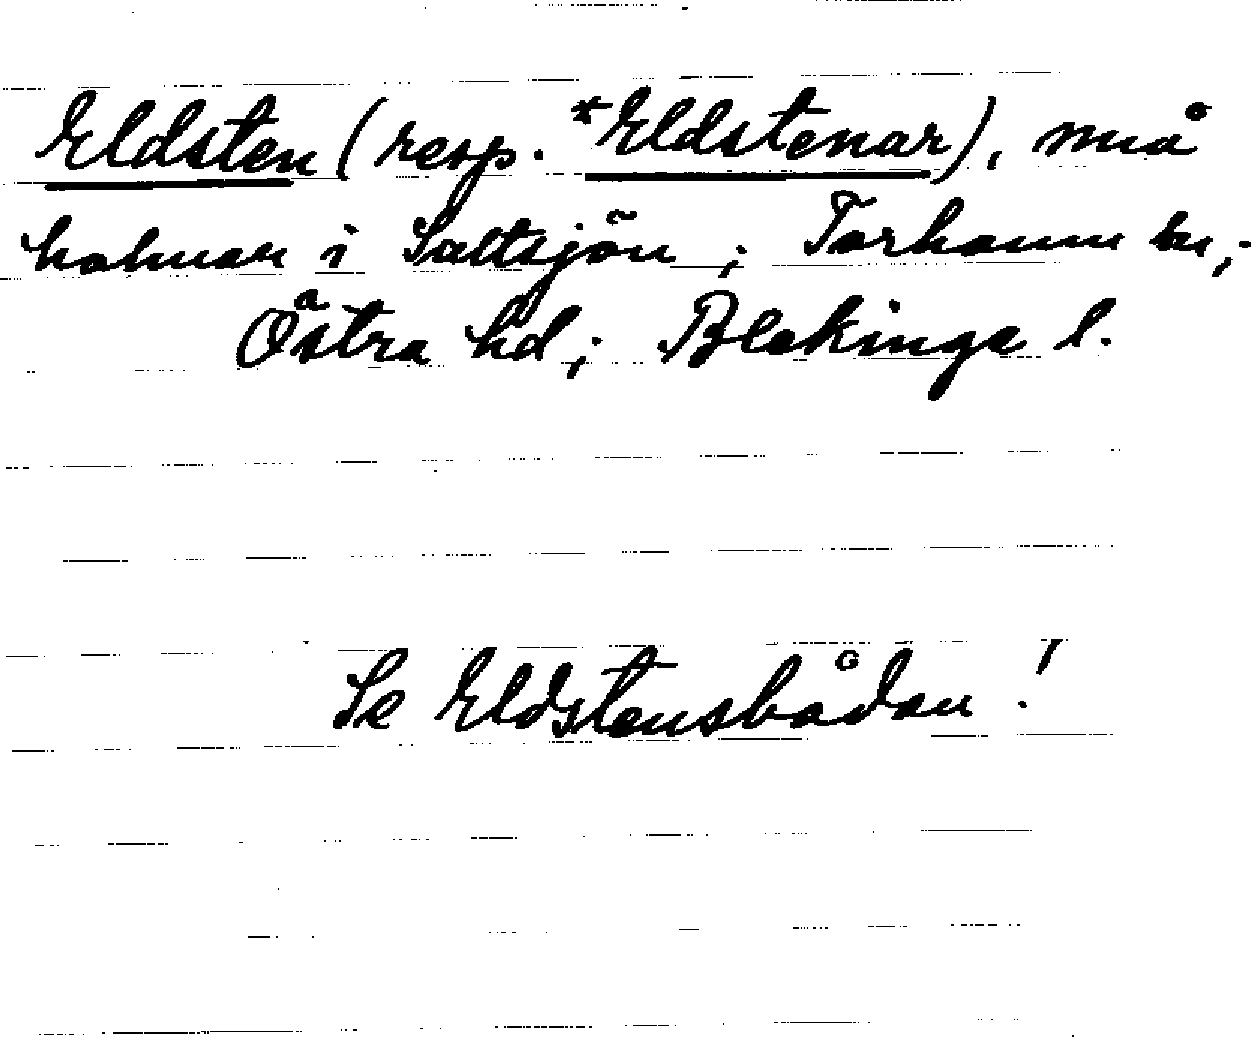 Eldsten (resp. *Eldstenar), små
holmar i Saltsjön; Torhamn sn,;
Östra hd; Blekinge l.
Se Eldstensbådan!